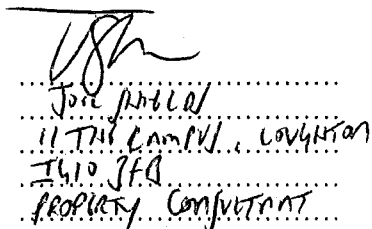 JOEL
11 THE CAMPUS, LOUGHTON
IG10 3FB
PROPERTY CONSULTANT